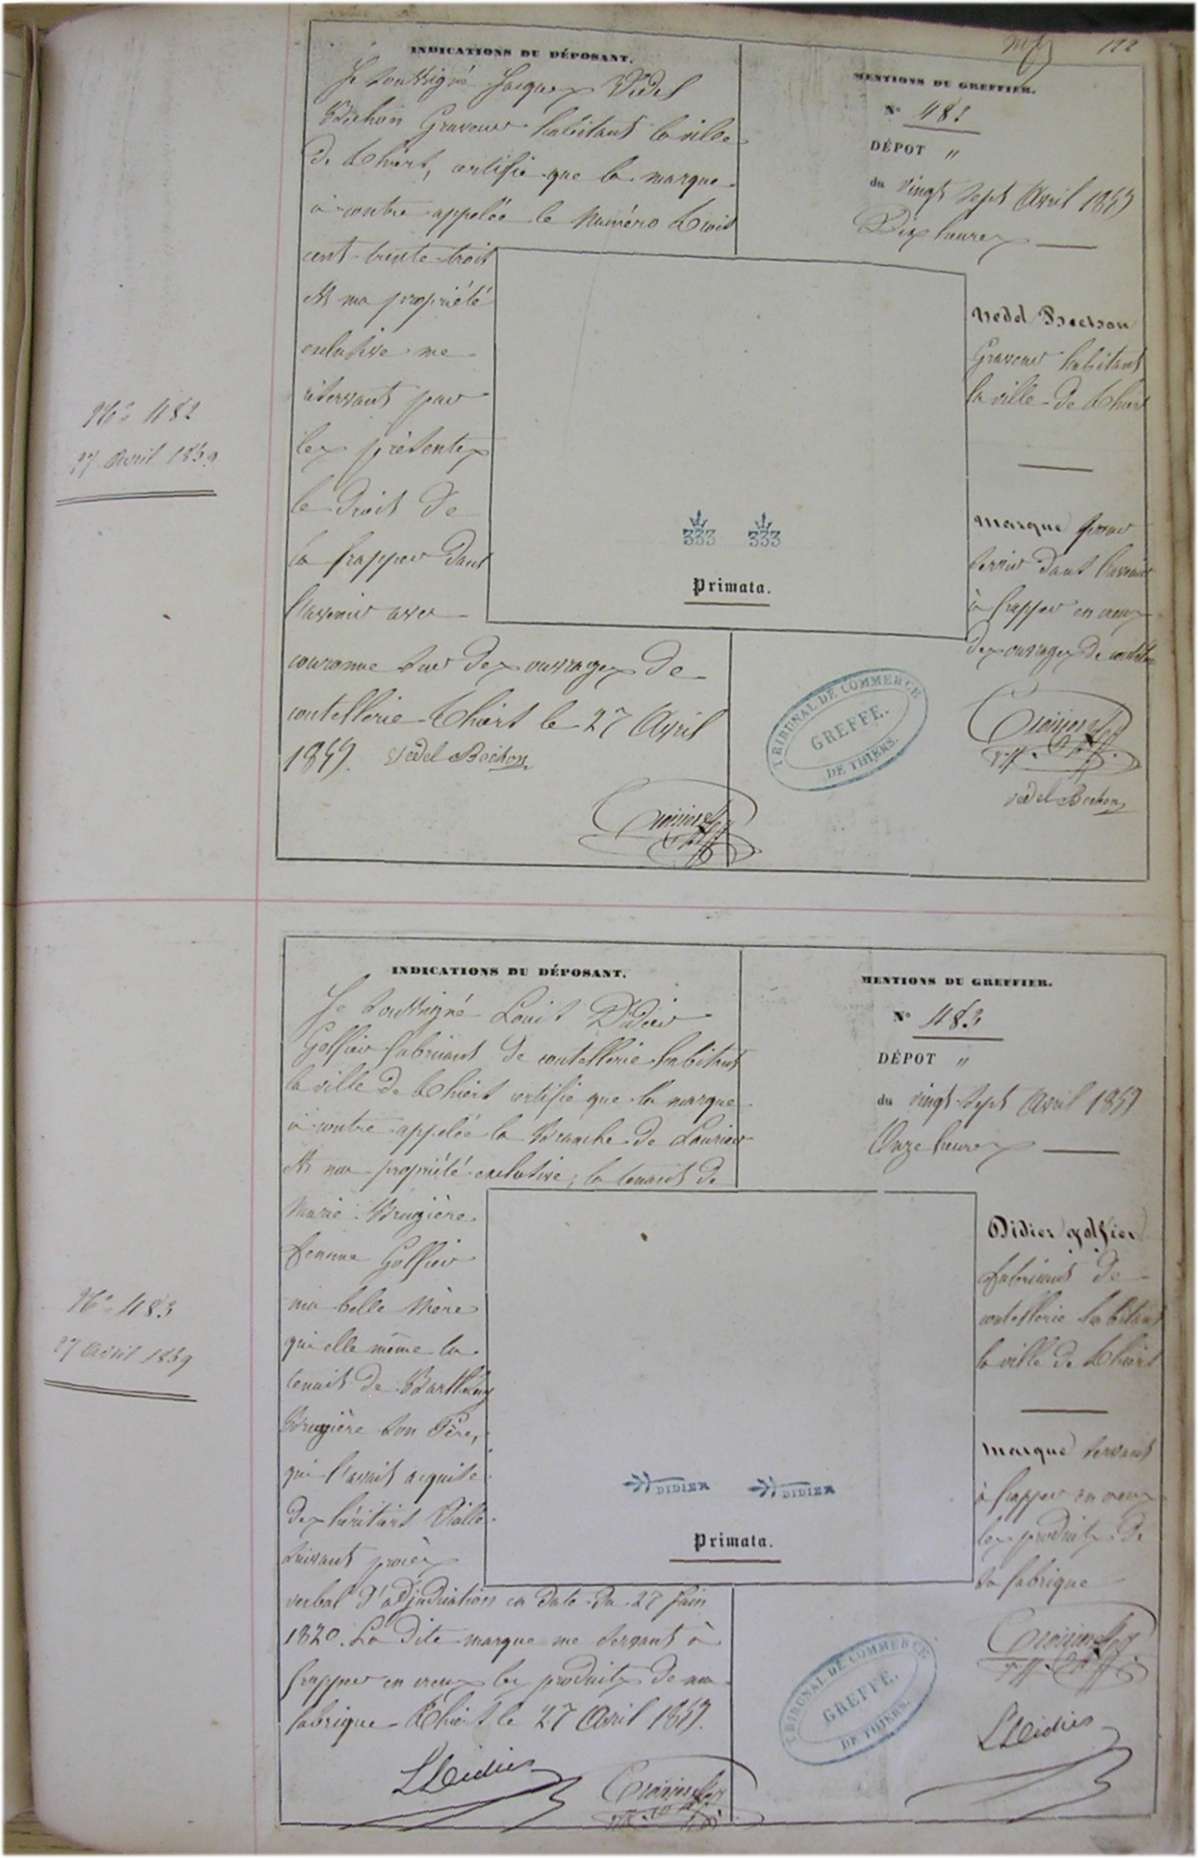 122
INDICATIONS DU DÉPOSANT.
Je soussigné Jacques Vedel
Bechon Graveur habitant la ville
de Thiers, certifie que la marque
ci contre appelée le Numéro trois
cent trente trois
est ma propriété
exclusive me
réservant par
les présentes
le droit de
la frapper dans
l'avenir avec
couronne sur des ouvrages de
coutellerie Thiers le 27 Avril
1859. Vedel Bechon
333 333
Primata.
MENTIONS DU GREFFIER.
N° 482
DÉPOT "
du vingt sept Avril 1859
Dix heures
Vedel Bechon
Graveur habitant
la ville de Thiers
Marque pour
servir dans l'avenir
à frapper en creux
des ouvrages de coutellerie
TRIBUNAL DE COMMERCE
GREFFE.
DE THIERS.
Vedel Bechon
N° 482
27 Avril 1859
INDICATIONS DU DÉPOSANT.
Je soussigné Louis Didier
Golfier fabricant de coutellerie habitant
la ville de Thiers certifie que la marque
ci contre appelée la Branche de Laurier
est ma propriété exclusive, la tenant de
Marie Brugière
femme Golfier
ma belle Mère
qui elle même la
tenait de Barthélemy
Brugière son Père,
qui l'avait acquise
des héritiers
suivant procès
verbal d'adjudication en date du 27 Juin
1820. La dite marque me servant à
frapper en creux les produits de ma
fabrique Thiers le 27 Avril 1859.
L Didier
DIDIER DIDIER
Primata.
MENTIONS DU GREFFIER.
N° 483
DÉPOT "
du vingt sept Avril 1859
Onze heures
Didier golfier
fabricant de
coutellerie habitant
la ville de Thiers
Marque servant
à frapper en creux
les produits de
sa fabrique
TRIBUNAL DE COMMERCE
GREFFE.
DE THIERS.
L Didier
N° 483
27 Avril 1859